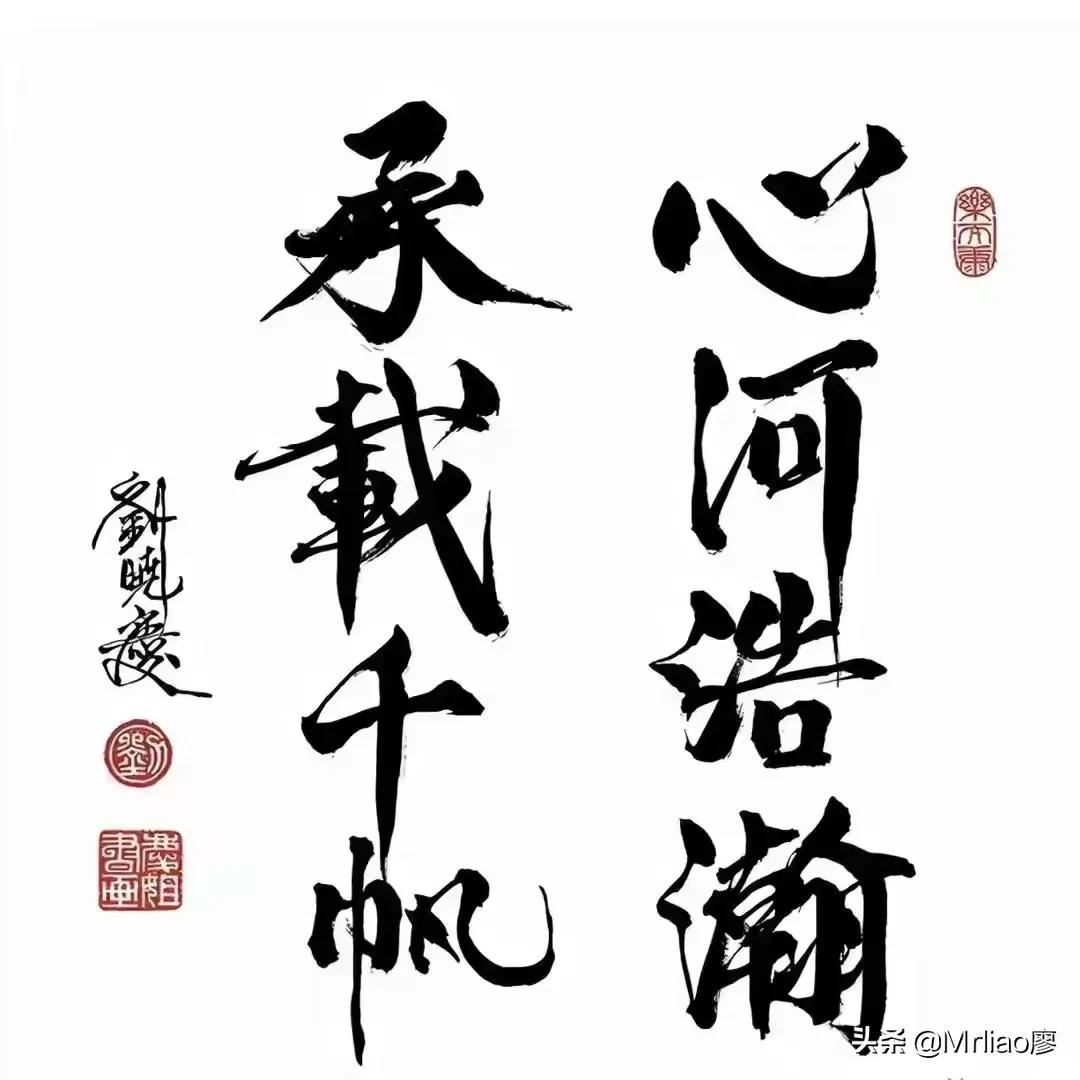 心河浩瀚
承載千帆
劉曉慶
劉
慶姐書画
头条 @Mrliao廖